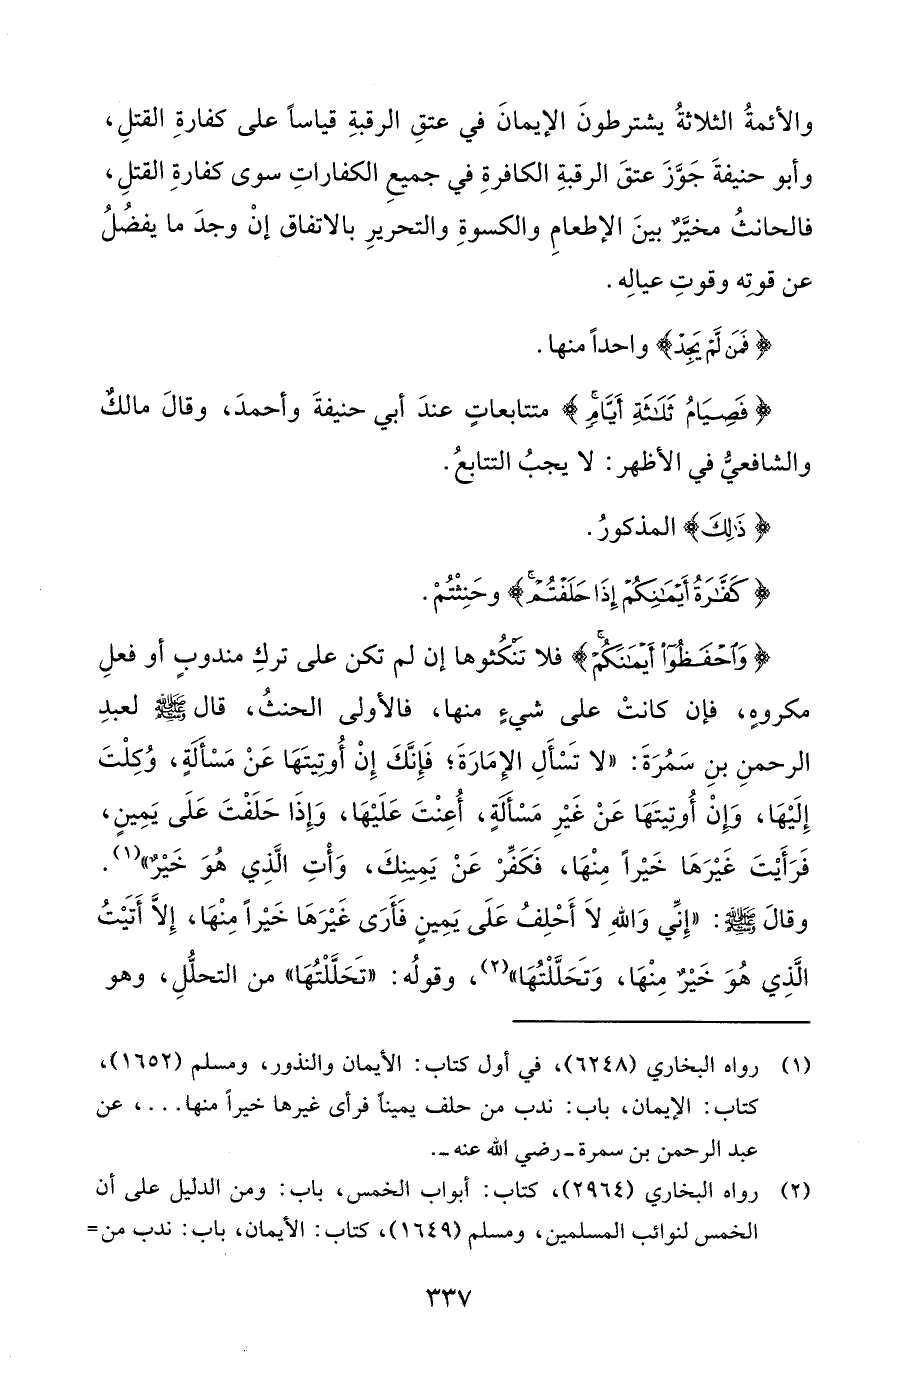 والأئمةُ الثلاثةُ يشترطونَ الإيمانَ في عتقِ الرقبةِ قياساً على كفارةِ القتلِ،
وأبو حنيفةَ جَوَّزَ عتقَ الرقبةِ الكافرةِ في جميعِ الكفاراتِ سوى كفارةِ القتلِ،
فالحانثُ مخيَّرٌ بينَ الإطعامِ والكسوةِ والتحريرِ بالاتفاق إنْ وجدَ ما يفضُلُ
عن قوتِه وقوتِ عيالِه.
﴿فَمَن لَّمْ يَجِدْ﴾ واحداً منها.
﴿فَصِيَامُ ثَلَٰثَةِ أَيَّامٍۚ﴾ متتابعاتٍ عندَ أبي حنيفةَ وأحمدَ، وقالَ مالكٌ
والشافعيُّ في الأظهر: لا يجبُ التتابعُ.
﴿ذَٰلِكَ﴾ المذكورُ.
﴿كَفَّٰرَةُ أَيْمَٰنِكُمْ إِذَا حَلَفْتُمْۚ﴾ وحَنِثْتُمْ.
﴿وَٱحْفَظُوٓا۟ أَيْمَٰنَكُمْۚ﴾ فلا تَنْكُثوها إن لم تكن على تركِ مندوبٍ أو فعلِ
مكروهٍ، فإن كانتْ على شيءٍ منها، فالأولى الحنثُ، قال ﷺ لعبدِ
الرحمنِ بنِ سَمُرَةَ: «لا تَسْأَلِ الإِمَارَةَ؛ فَإِنَّكَ إِنْ أُوتِيتَهَا عَنْ مَسْأَلَةٍ، وُكِلْتَ
إِلَيْهَا، وَإِنْ أُوتِيتَهَا عَنْ غَيْرِ مَسْأَلَةٍ، أُعِنْتَ عَلَيْهَا، وَإِذَا حَلَفْتَ عَلَى يَمِينٍ،
فَرَأَيْتَ غَيْرَهَا خَيْراً مِنْهَا، فَكَفِّرْ عَنْ يَمِينِكَ، وَأْتِ الَّذِي هُوَ خَيْرٌ»(١).
وقالَ ﷺ: «إِنِّي وَاللهِ لاَ أَحْلِفُ عَلَى يَمِينٍ فَأَرَى غَيْرَهَا خَيْراً مِنْهَا، إِلاَّ أَتَيْتُ
الَّذِي هُوَ خَيْرٌ مِنْهَا، وَتَحَلَّلْتُهَا»(٢)، وقولُه: «تَحَلَّلْتُهَا» من التحلُّلِ، وهو
(١) رواه البخاري (٦٢٤٨)، في أول كتاب: الأيمان والنذور، ومسلم (١٦٥٢)،
كتاب: الإيمان، باب: ندب من حلف يميناً فرأى غيرها خيراً منها...، عن
عبد الرحمن بن سمرة ـ رضي الله عنه ـ.
(٢) رواه البخاري (٢٩٦٤)، كتاب: أبواب الخمس، باب: ومن الدليل على أن
الخمس لنوائب المسلمين، ومسلم (١٦٤٩)، كتاب: الأيمان، باب: ندب من=
٣٣٧